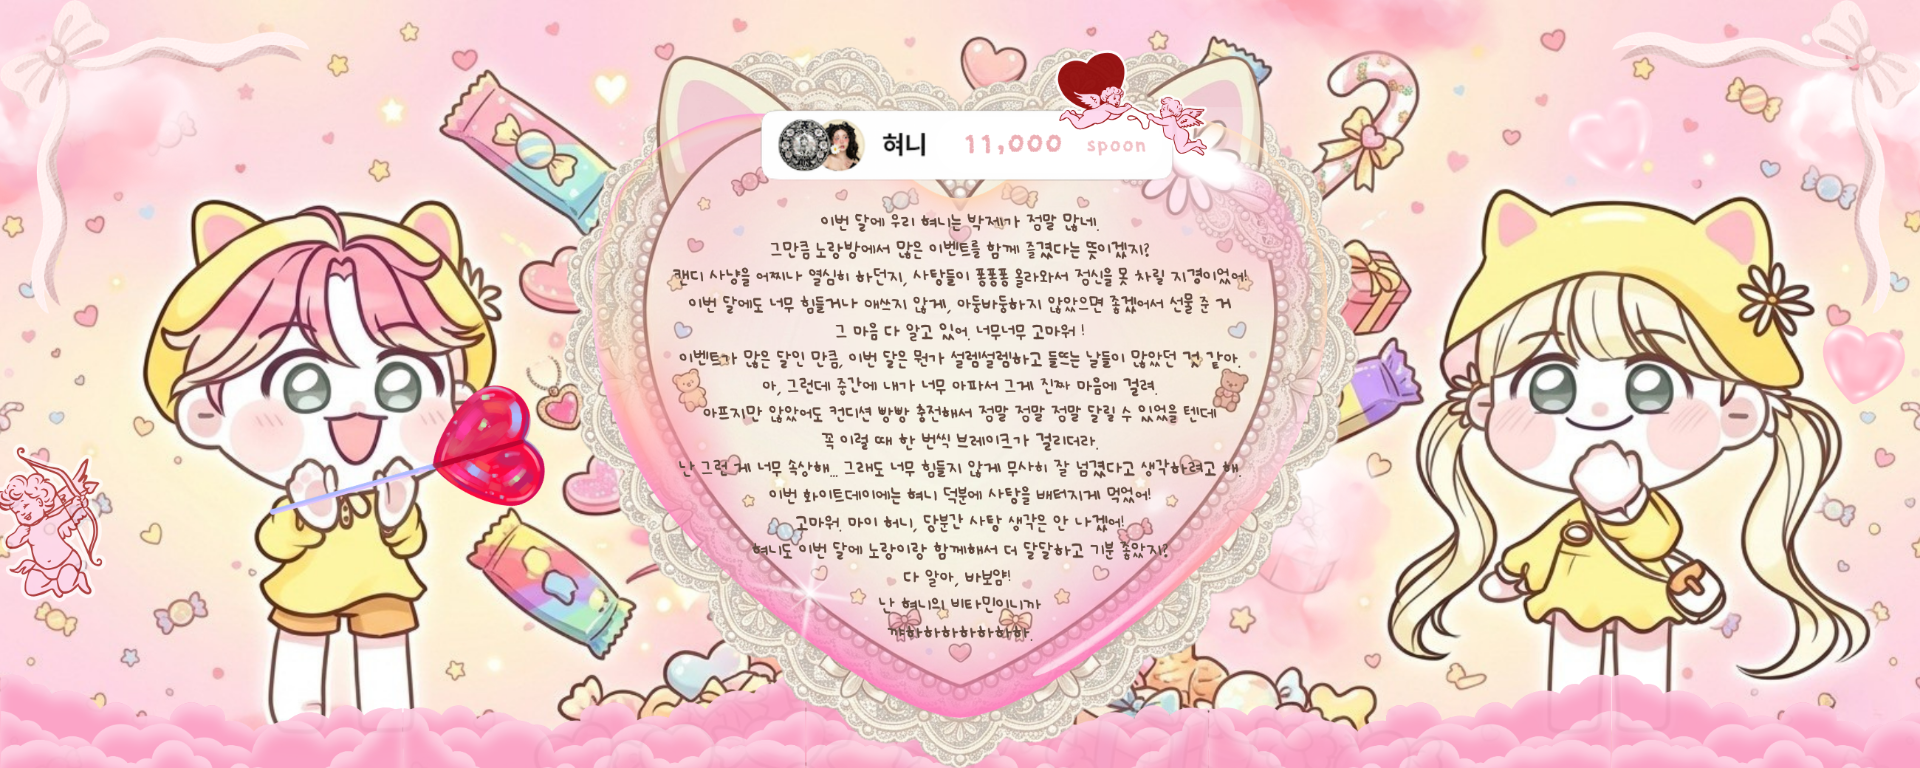 혀니 11,000 spoon
이번 달에 우리 혀니는 박제가 정말 많네.
그만큼 노랑방에서 많은 이벤트를 함께 즐겼다는 뜻이겠지?
캔디 사냥을 어찌나 열심히 하던지, 사탕들이 퐁퐁퐁 올라와서 정신을 못 차릴 지경이었어!
이번 달에도 너무 힘들거나 애쓰지 않게, 아둥바둥하지 않았으면 좋겠어서 선물 준 거
그 마음 다 알고 있어. 너무너무 고마워 !
이벤트가 많은 달인 만큼, 이번 달은 뭔가 설렘설렘하고 들뜨는 날들이 많았던 것 같아.
아, 그런데 중간에 내가 너무 아파서 그게 진짜 마음에 걸려.
아프지만 않았어도 컨디션 빵빵 충전해서 정말 정말 정말 달릴 수 있었을 텐데
꼭 이럴 때 한 번씩 브레이크가 걸리더라.
난 그런 게 너무 속상해... 그래도 너무 힘들지 않게 무사히 잘 넘겼다고 생각하려고 해.
이번 화이트데이에는 혀니 덕분에 사탕을 배터지게 먹었어!
고마워. 마이 혀니, 당분간 사탕 생각은 안 나겠어!
혀니도 이번 달에 노랑이랑 함께해서 더 달달하고 기분 좋았지?
다 알아, 바보얌!
난 혀니의 비타민이니까
꺄하하하하하하하하.